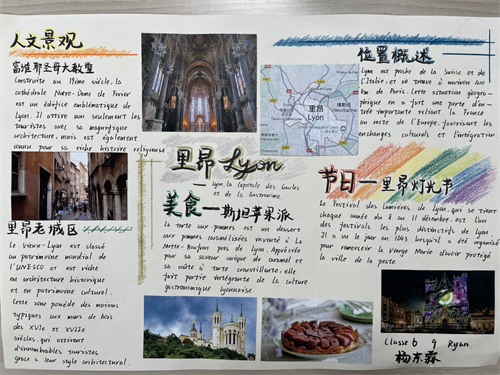 人文景观
富维耶圣母大教堂
Construite au 19ème siècle, la
cathédrale Notre-Dame de Fourier
est un édifice emblématique de
Lyon. Il attire non seulement les
touristes avec sa magnifique
architecture, mais est également
connu pour sa riche histoire religieuse.
里昂老城区
Le Vieux-Lyon est classé
au patrimoine mondial de
l'UNESCO et est riche
en architecture historique
et en patrimoine culturel.
Cette zone possède des maisons
typiques aux murs de bois
des XVIe et XVIIe
siècles, qui attirent
d'innombrables touristes
grâce à leur style architectural.
里昂 Lyon
— Lyon, la Capitale des Gaules
et de la Gastronomie
美食—斯坦苹果派
La tarte aux pommes est un dessert
aux pommes caramélisées inventé à La
Motte-Beufron près de Lyon. Appréciée
pour sa saveur unique de caramel et
sa croûte à tarte croustillante, elle
fait partie intégrante de la culture
gastronomique lyonnaise.
位置概述
Lyon est proche de la Suisse et de
l'Italie, et se trouve à environ 400
km de Paris. Cette situation géogra-
phique en a fait une porte d'en-
trée importante reliant la France
au reste de l'Europe, favorisant les
enchanges culturels et l'intégration
里昂
Lyon
节日—里昂灯光节
Le Festival des Lumières de Lyon, qui se tient
chaque année du 8 au 11 décembre, est l'un
des festivals les plus distinctifs de Lyon.
Il a vu le jour en 1643 lorsqu'il a été organisé
pour remercier la Vierge Marie d'avoir protégé
la ville de la peste
Classe 6 9 Ryan
杨木霖